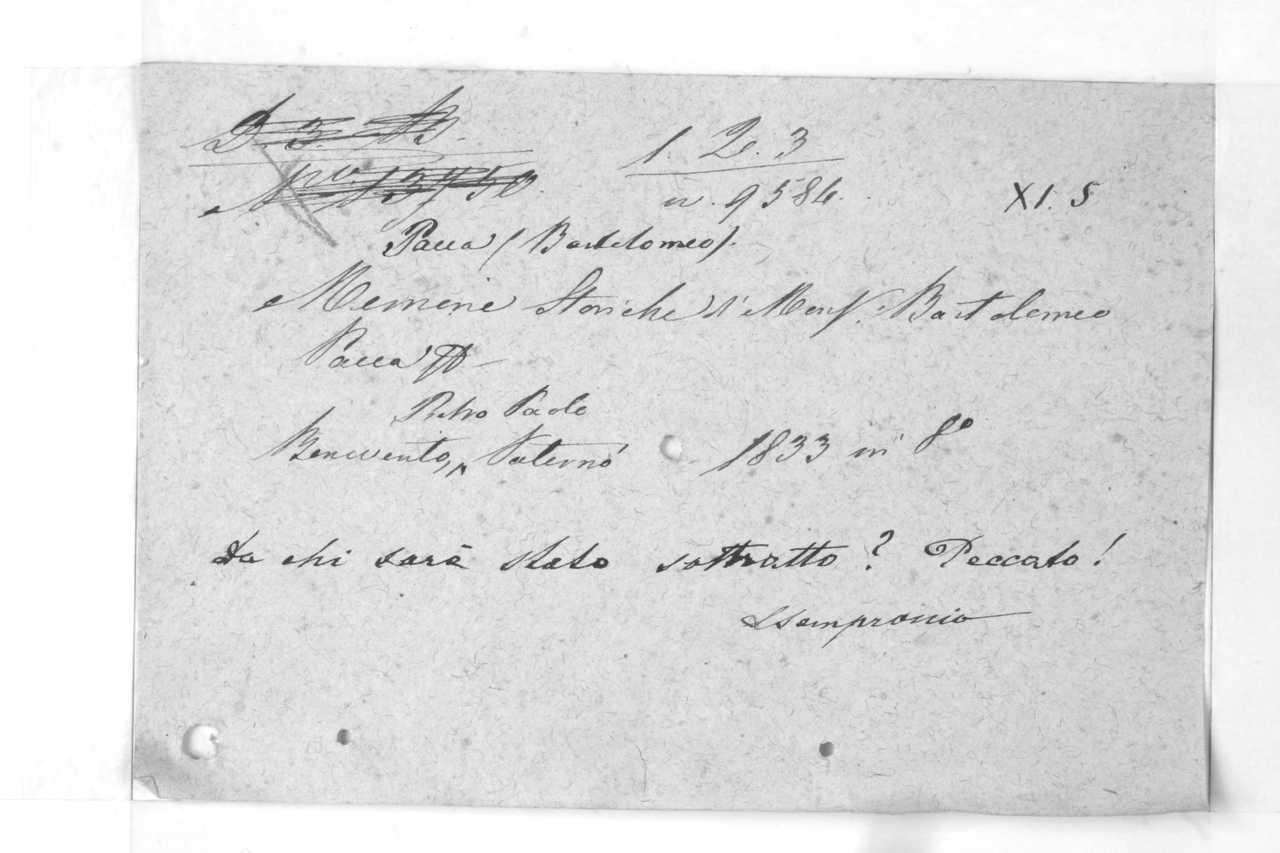 1. 2. 3
n. 9584.
XI. 5
Pacca (Bartolomeo).
Memorie Storiche di Mons. Bartolomeo
Pacca
Pietro Paolo
Benevento, Paternò 1833 in 8º
Da chi sarà stato sottratto? Peccato!
Ssempronio